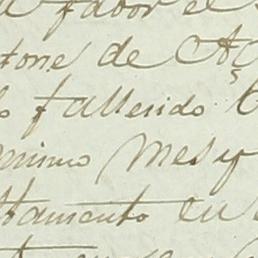 a favor el
torre de Aç
o fallesido
mismo Mes y
tamento en